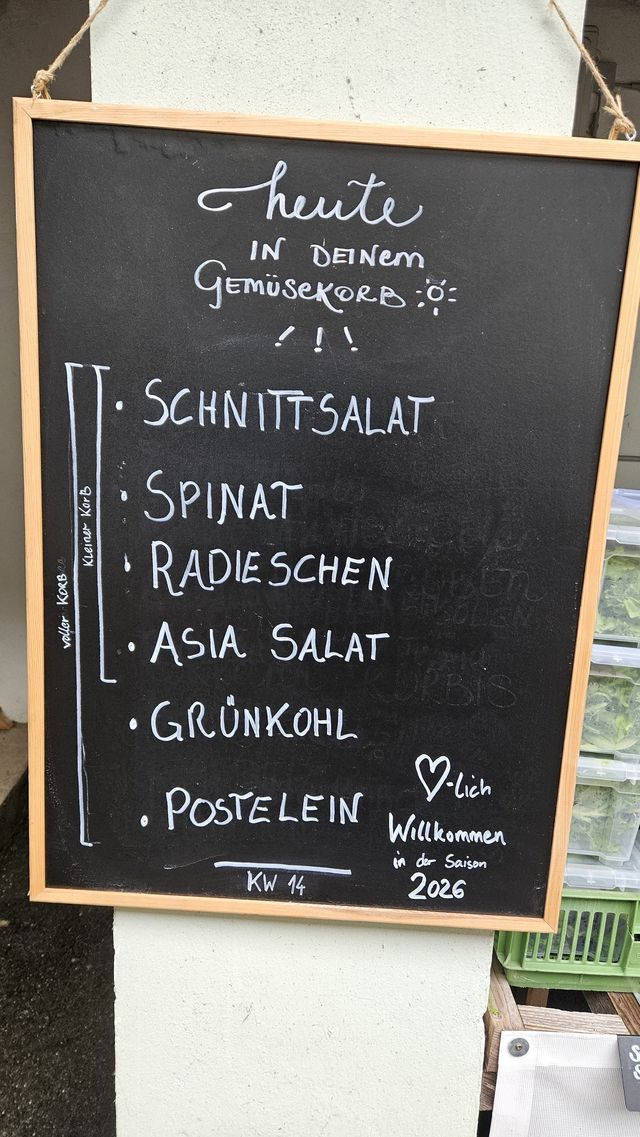 heute
IN DEINEM
GEMÜSEKORB
! ! !
• SCHNITTSALAT
• SPINAT
• RADIESCHEN
• ASIA SALAT
• GRÜNKOHL
• POSTELEIN
Kleiner Korb
voller KORB
♡-lich
Willkommen
in der Saison
2026
KW 14